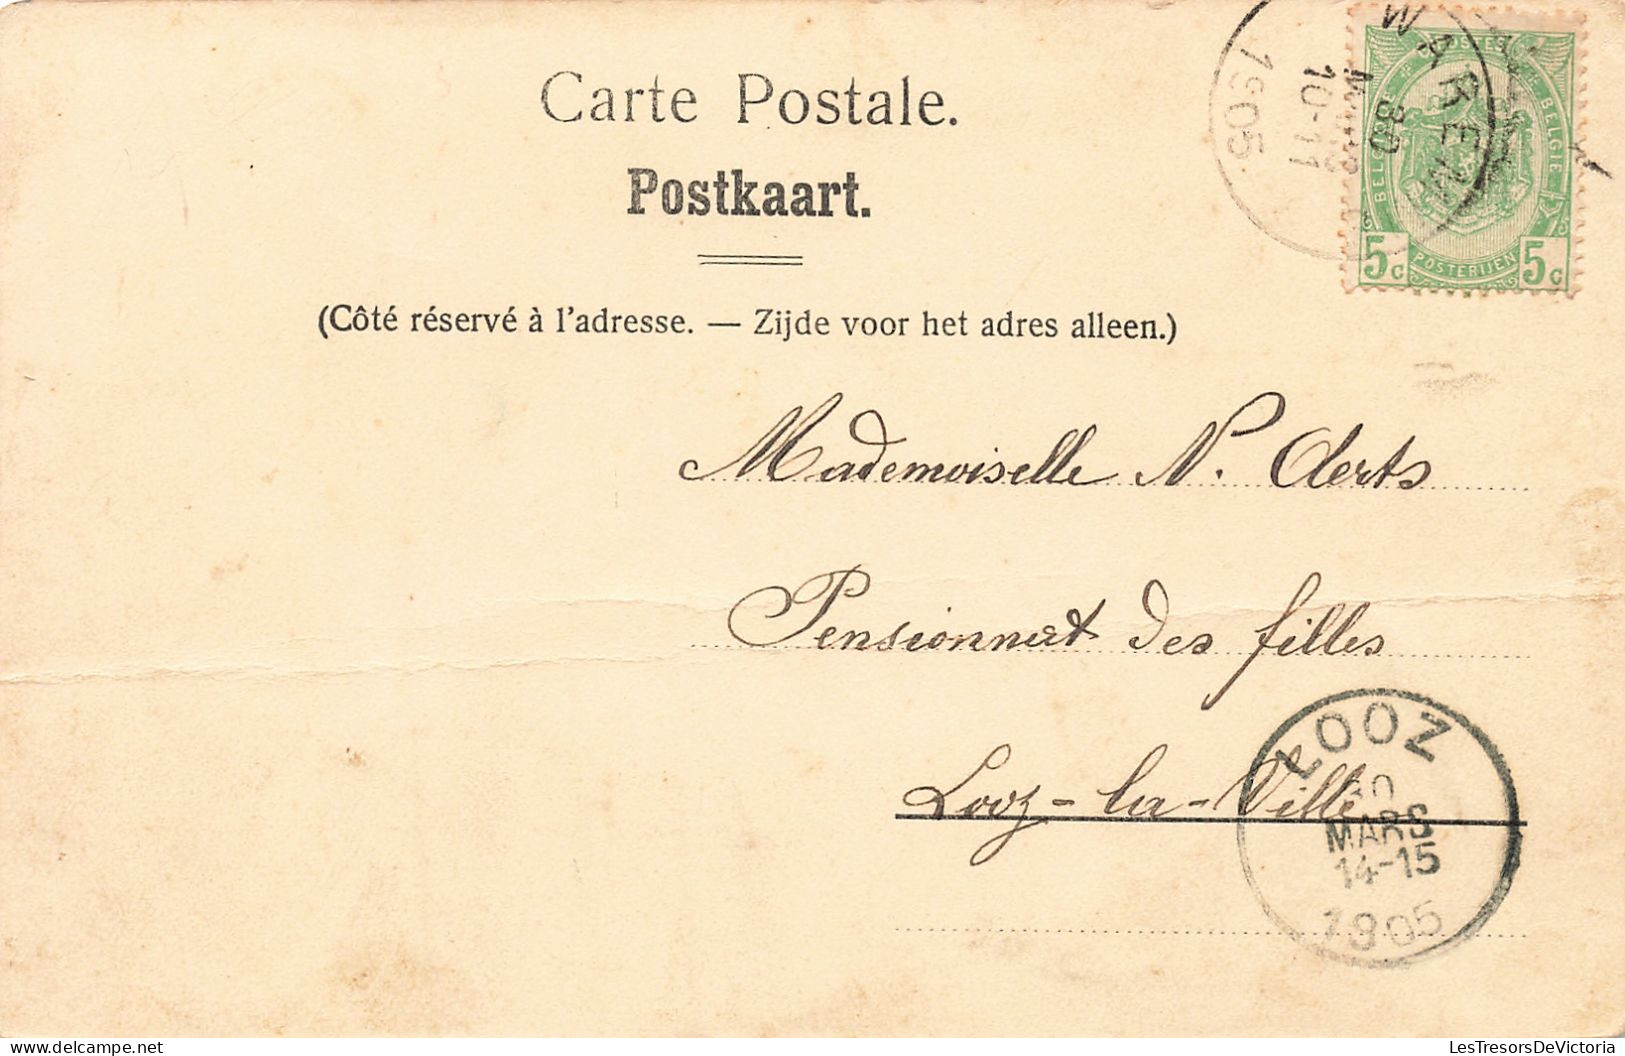 Carte Postale.
Postkaart.
(Côté réservé à l'adresse. — Zijde voor het adres alleen.)
WAREM
30
10-11
1905
POSTES
BELGIQUE
BELGIE
5c POSTERIJEN 5c
Mademoiselle N. Aerts
Pensionnat des filles
Looz-la-Ville
LOOZ
30
MARS
14-15
1905
LesTresorsDeVictoria